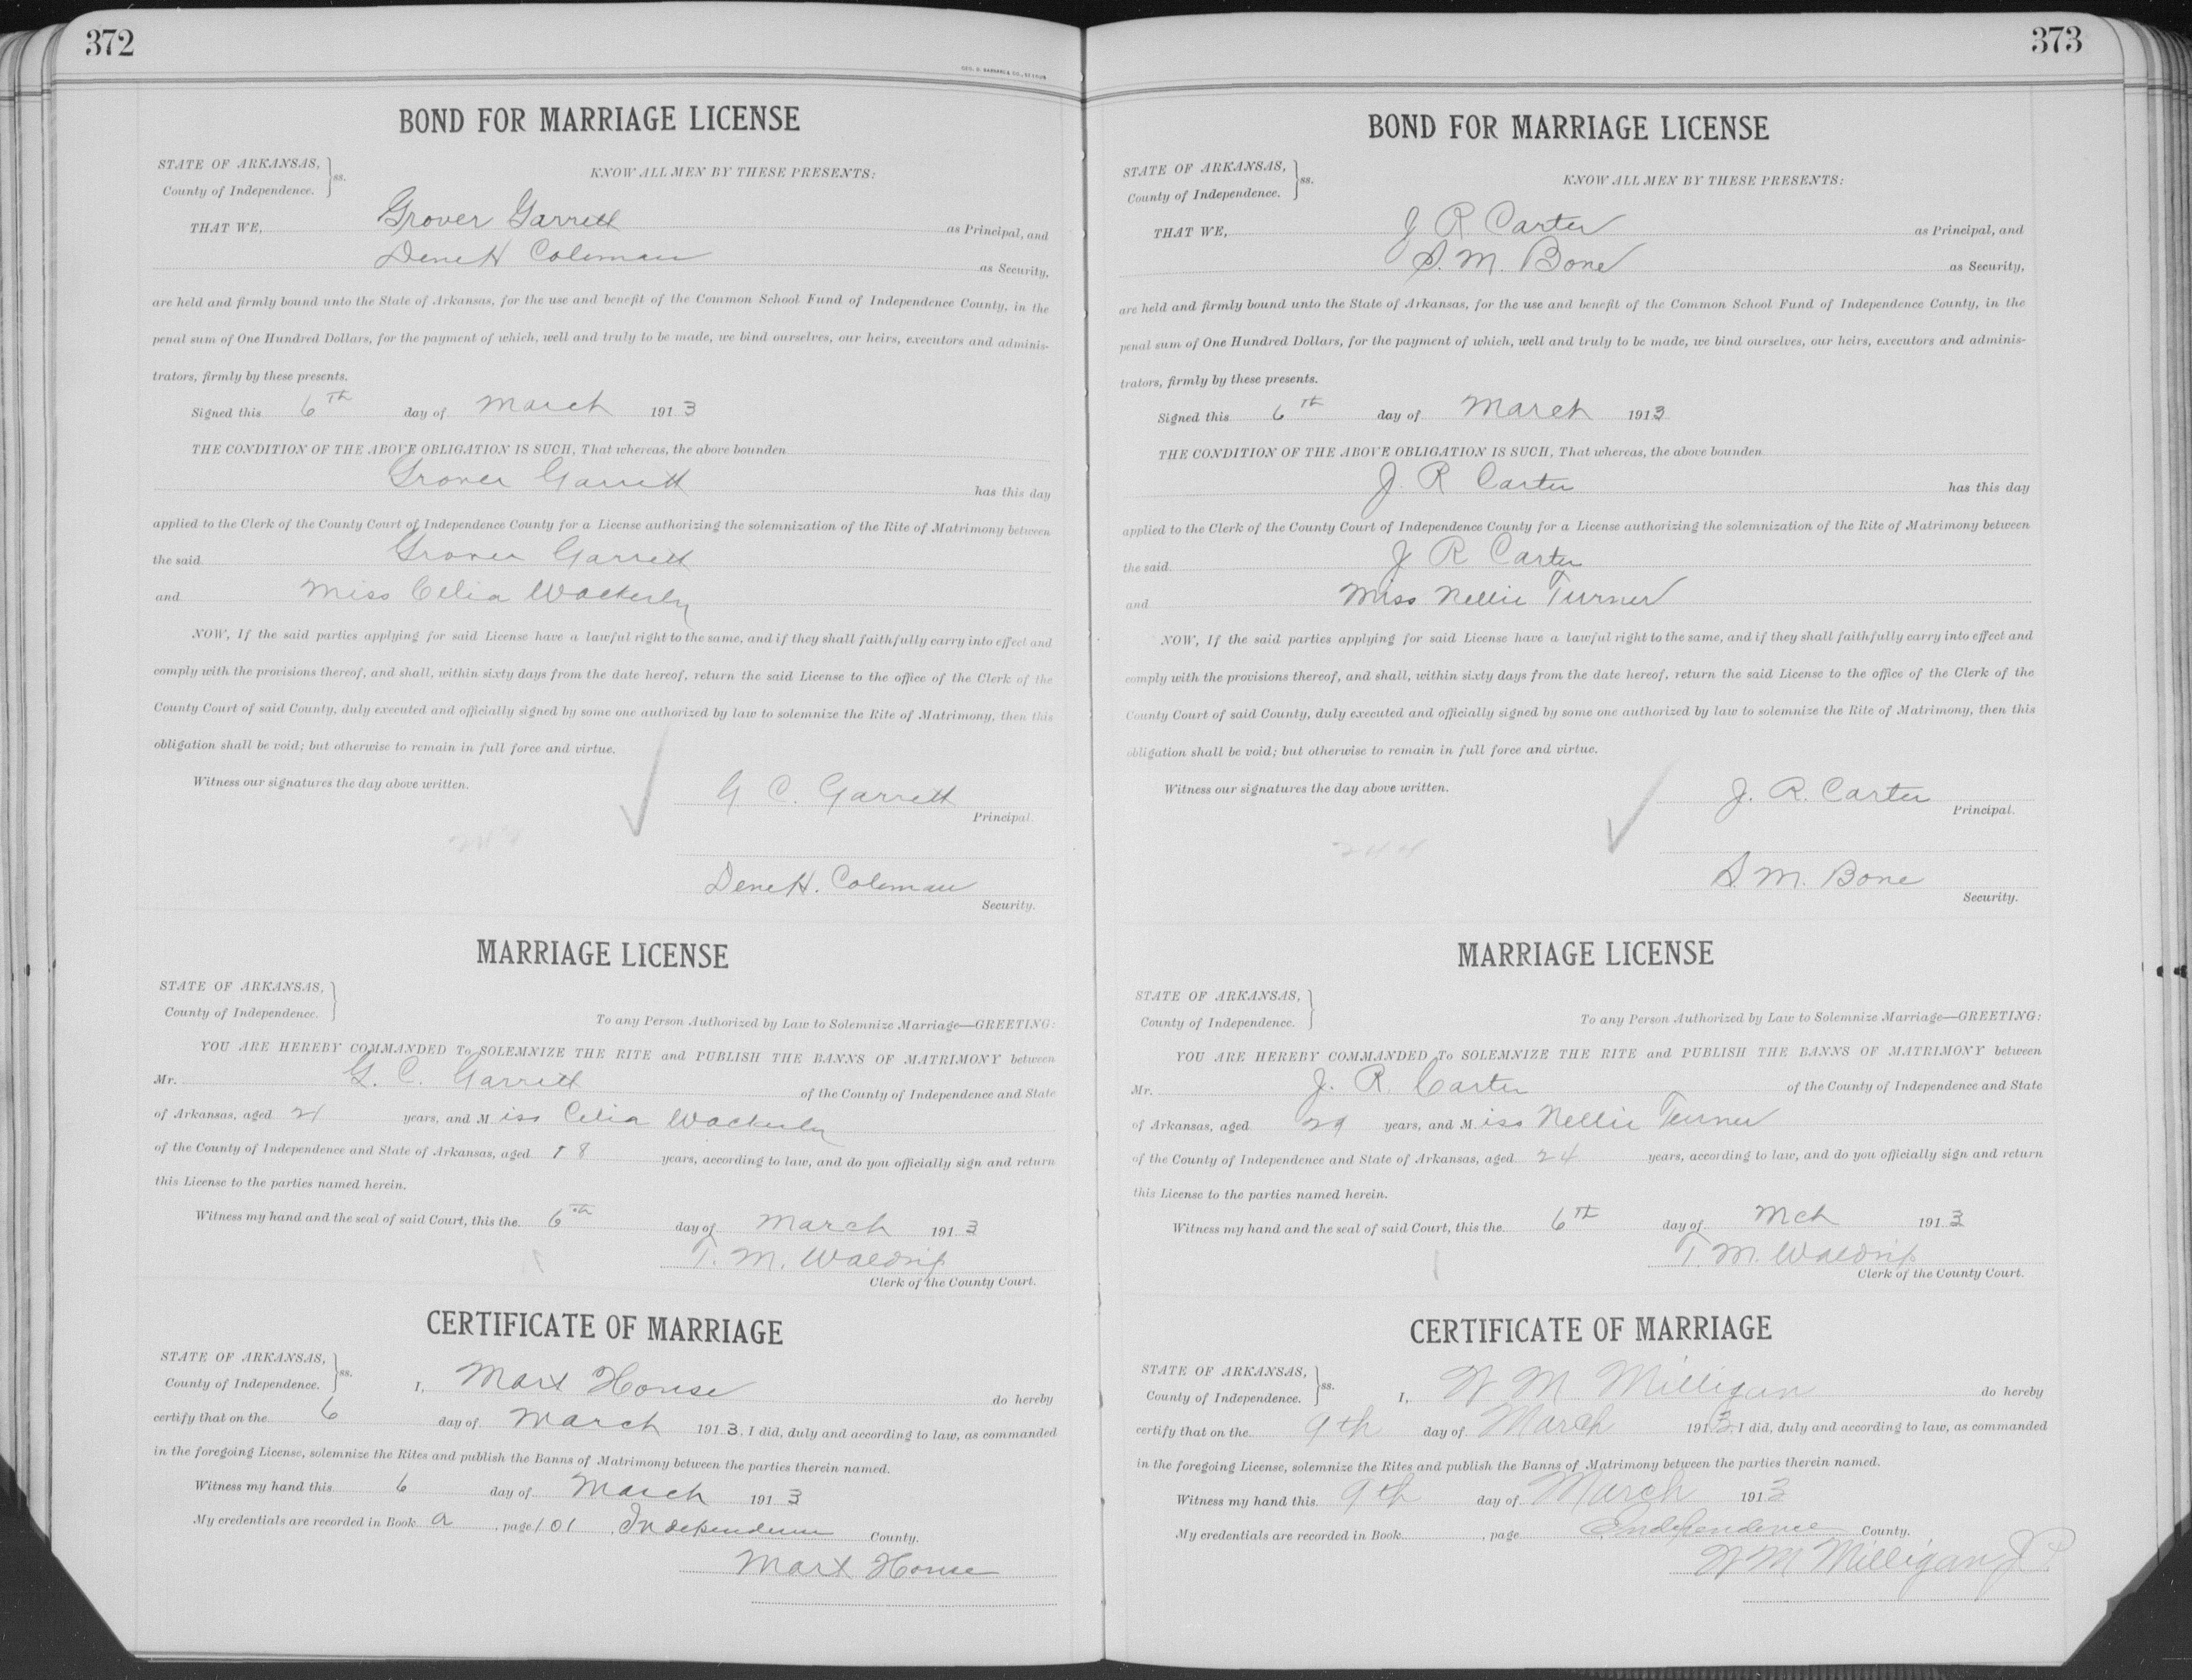 372
GEO. D. BARNARD & CO., ST. LOUIS
BOND FOR MARRIAGE LICENSE
STATE OF ARKANSAS,
County of Independence. ss.
KNOW ALL MEN BY THESE PRESENTS:
THAT WE, Grover Garrett as Principal, and
Dene H Coleman as Security,
are held and firmly bound unto the State of Arkansas, for the use and benefit of the Common School Fund of Independence County, in the
penal sum of One Hundred Dollars, for the payment of which, well and truly to be made, we bind ourselves, our heirs, executors and adminis-
trators, firmly by these presents.
Signed this 6th day of March 1913
THE CONDITION OF THE ABOVE OBLIGATION IS SUCH, That whereas, the above bounden
Grover Garrett has this day
applied to the Clerk of the County Court of Independence County for a License authorizing the solemnization of the Rite of Matrimony between
the said Grover Garrett
and Miss Celia Wackerly
NOW, If the said parties applying for said License have a lawful right to the same, and if they shall faithfully carry into effect and
comply with the provisions thereof, and shall, within sixty days from the date hereof, return the said License to the office of the Clerk of the
County Court of said County, duly executed and officially signed by some one authorized by law to solemnize the Rite of Matrimony, then this
obligation shall be void; but otherwise to remain in full force and virtue.
Witness our signatures the day above written.
G C. Garrett
Principal.
Dene H. Coleman
Security.
MARRIAGE LICENSE
STATE OF ARKANSAS,
County of Independence.
To any Person Authorized by Law to Solemnize Marriage—GREETING:
YOU ARE HEREBY COMMANDED To SOLEMNIZE THE RITE and PUBLISH THE BANNS OF MATRIMONY between
Mr. G. C. Garrett of the County of Independence and State
of Arkansas, aged 21 years, and Miss Celia Wackerly
of the County of Independence and State of Arkansas, aged 18 years, according to law, and do you officially sign and return
this License to the parties named herein.
Witness my hand and the seal of said Court, this the 6th day of March 1913
T. M. Waldrip
Clerk of the County Court.
CERTIFICATE OF MARRIAGE
STATE OF ARKANSAS,
County of Independence. ss.
I, Mart House do hereby
certify that on the 6 day of March 1913, I did, duly and according to law, as commanded
in the foregoing License, solemnize the Rites and publish the Banns of Matrimony between the parties therein named.
Witness my hand this 6 day of March 1913
My credentials are recorded in Book a, page 101, Independence County.
Mart House
373
BOND FOR MARRIAGE LICENSE
STATE OF ARKANSAS,
County of Independence. ss.
KNOW ALL MEN BY THESE PRESENTS:
THAT WE, J R Carter as Principal, and
S. M. Bone as Security,
are held and firmly bound unto the State of Arkansas, for the use and benefit of the Common School Fund of Independence County, in the
penal sum of One Hundred Dollars, for the payment of which, well and truly to be made, we bind ourselves, our heirs, executors and adminis-
trators, firmly by these presents.
Signed this 6th day of March 1913
THE CONDITION OF THE ABOVE OBLIGATION IS SUCH, That whereas, the above bounden
J. R Carter has this day
applied to the Clerk of the County Court of Independence County for a License authorizing the solemnization of the Rite of Matrimony between
the said J R Carter
and Miss Nellie Turner
NOW, If the said parties applying for said License have a lawful right to the same, and if they shall faithfully carry into effect and
comply with the provisions thereof, and shall, within sixty days from the date hereof, return the said License to the office of the Clerk of the
County Court of said County, duly executed and officially signed by some one authorized by law to solemnize the Rite of Matrimony, then this
obligation shall be void; but otherwise to remain in full force and virtue.
Witness our signatures the day above written.
J. R. Carter
Principal.
S. M. Bone
Security.
MARRIAGE LICENSE
STATE OF ARKANSAS,
County of Independence.
To any Person Authorized by Law to Solemnize Marriage—GREETING:
YOU ARE HEREBY COMMANDED To SOLEMNIZE THE RITE and PUBLISH THE BANNS OF MATRIMONY between
Mr. J. R. Carter of the County of Independence and State
of Arkansas, aged 29 years, and Miss Nellie Turner
of the County of Independence and State of Arkansas, aged 24 years, according to law, and do you officially sign and return
this License to the parties named herein.
Witness my hand and the seal of said Court, this the 6th day of Mch 1913
T. M. Waldrip
Clerk of the County Court.
CERTIFICATE OF MARRIAGE
STATE OF ARKANSAS,
County of Independence. ss.
I, W M Milligan do hereby
certify that on the 9th day of March 1913, I did, duly and according to law, as commanded
in the foregoing License, solemnize the Rites and publish the Banns of Matrimony between the parties therein named.
Witness my hand this 9th day of March 1913
My credentials are recorded in Book , page , Independence County.
W M Milligan J.P.